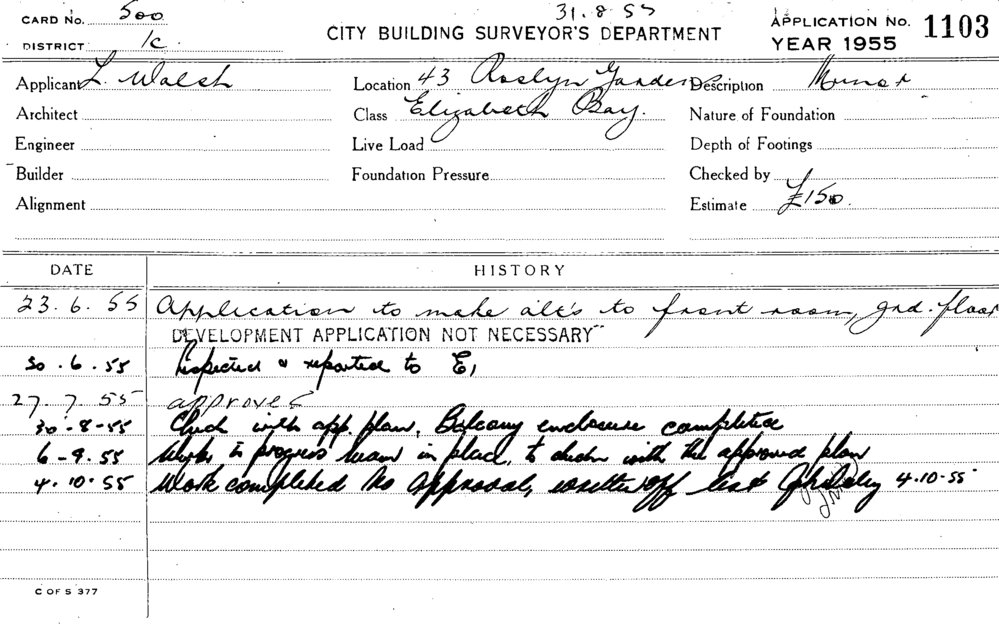 CARD No. 500
31.8.55
DISTRICT 1c
CITY BUILDING SURVEYOR'S DEPARTMENT
APPLICATION No. 1103
YEAR 1955
Applicant L. Walsh
Location 43 Roslyn Gardens
Description Minor
Architect
Class Elizabeth Bay.
Nature of Foundation
Engineer
Live Load
Depth of Footings
Builder
Foundation Pressure
Checked by
Alignment
Estimate £150.
DATE HISTORY
23.6.55 Application to make alt's to front room, grd. floor
DEVELOPMENT APPLICATION NOT NECESSARY
30.6.55 Inspected & reported to E,
27.7.55 approved
30-8-55 Check with app. plan, Balcony enclosure completed
6-9.55 Works in progress beam in place, to check with the approved plan
4.10.55 Work completed to approval, written off list 4.10.55
C OF S 377